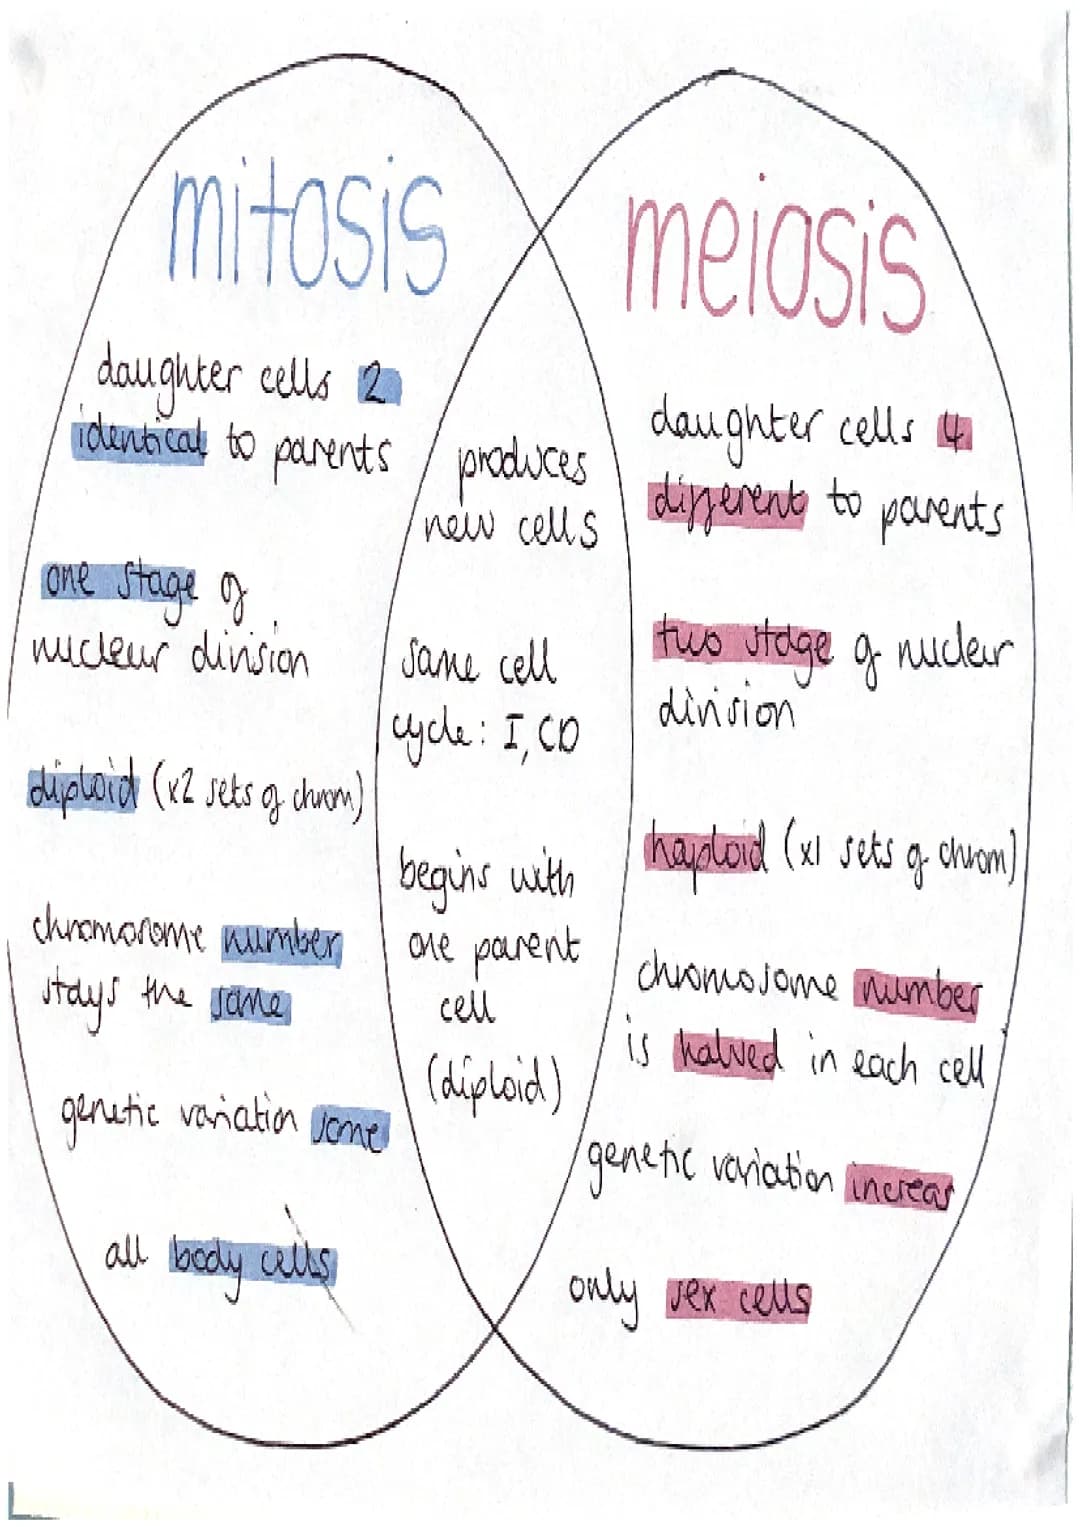 mitosis
daughter cells 2
identical to parents
one stage of
nuclear division
diploid (x2 sets of chrom)
chromosome number
stays the same
genetic variation same
all body cells
produces
new cells
same cell
cycle: I, CD
begins with
one parent
cell
(diploid)
meiosis
daughter cells 4
different to parents
two stage of nuclear
division
haploid (x1 sets of chrom)
chromosome number
is halved in each cell
genetic variation increas
only sex cells